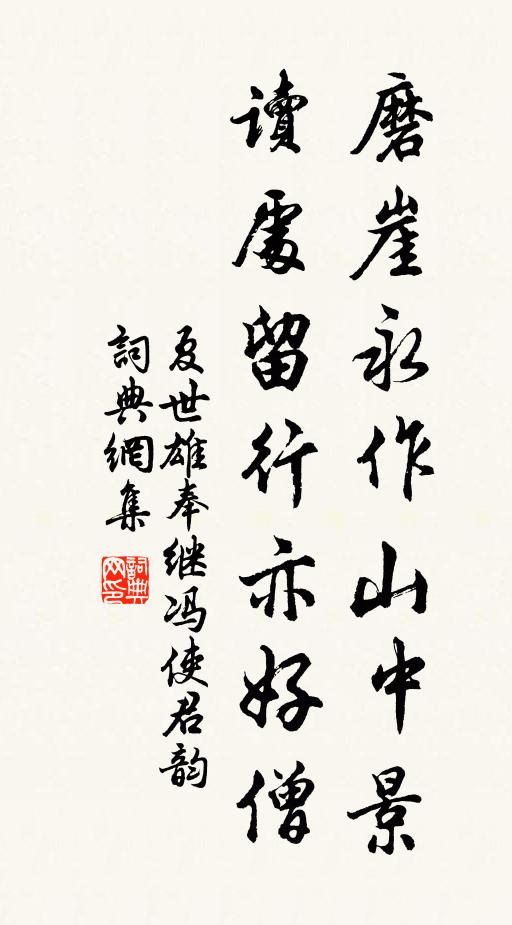 磨崖永作山中景
读處留行亦好僧
夏世雄奉继冯使君韵
詞典網集
詞典网印